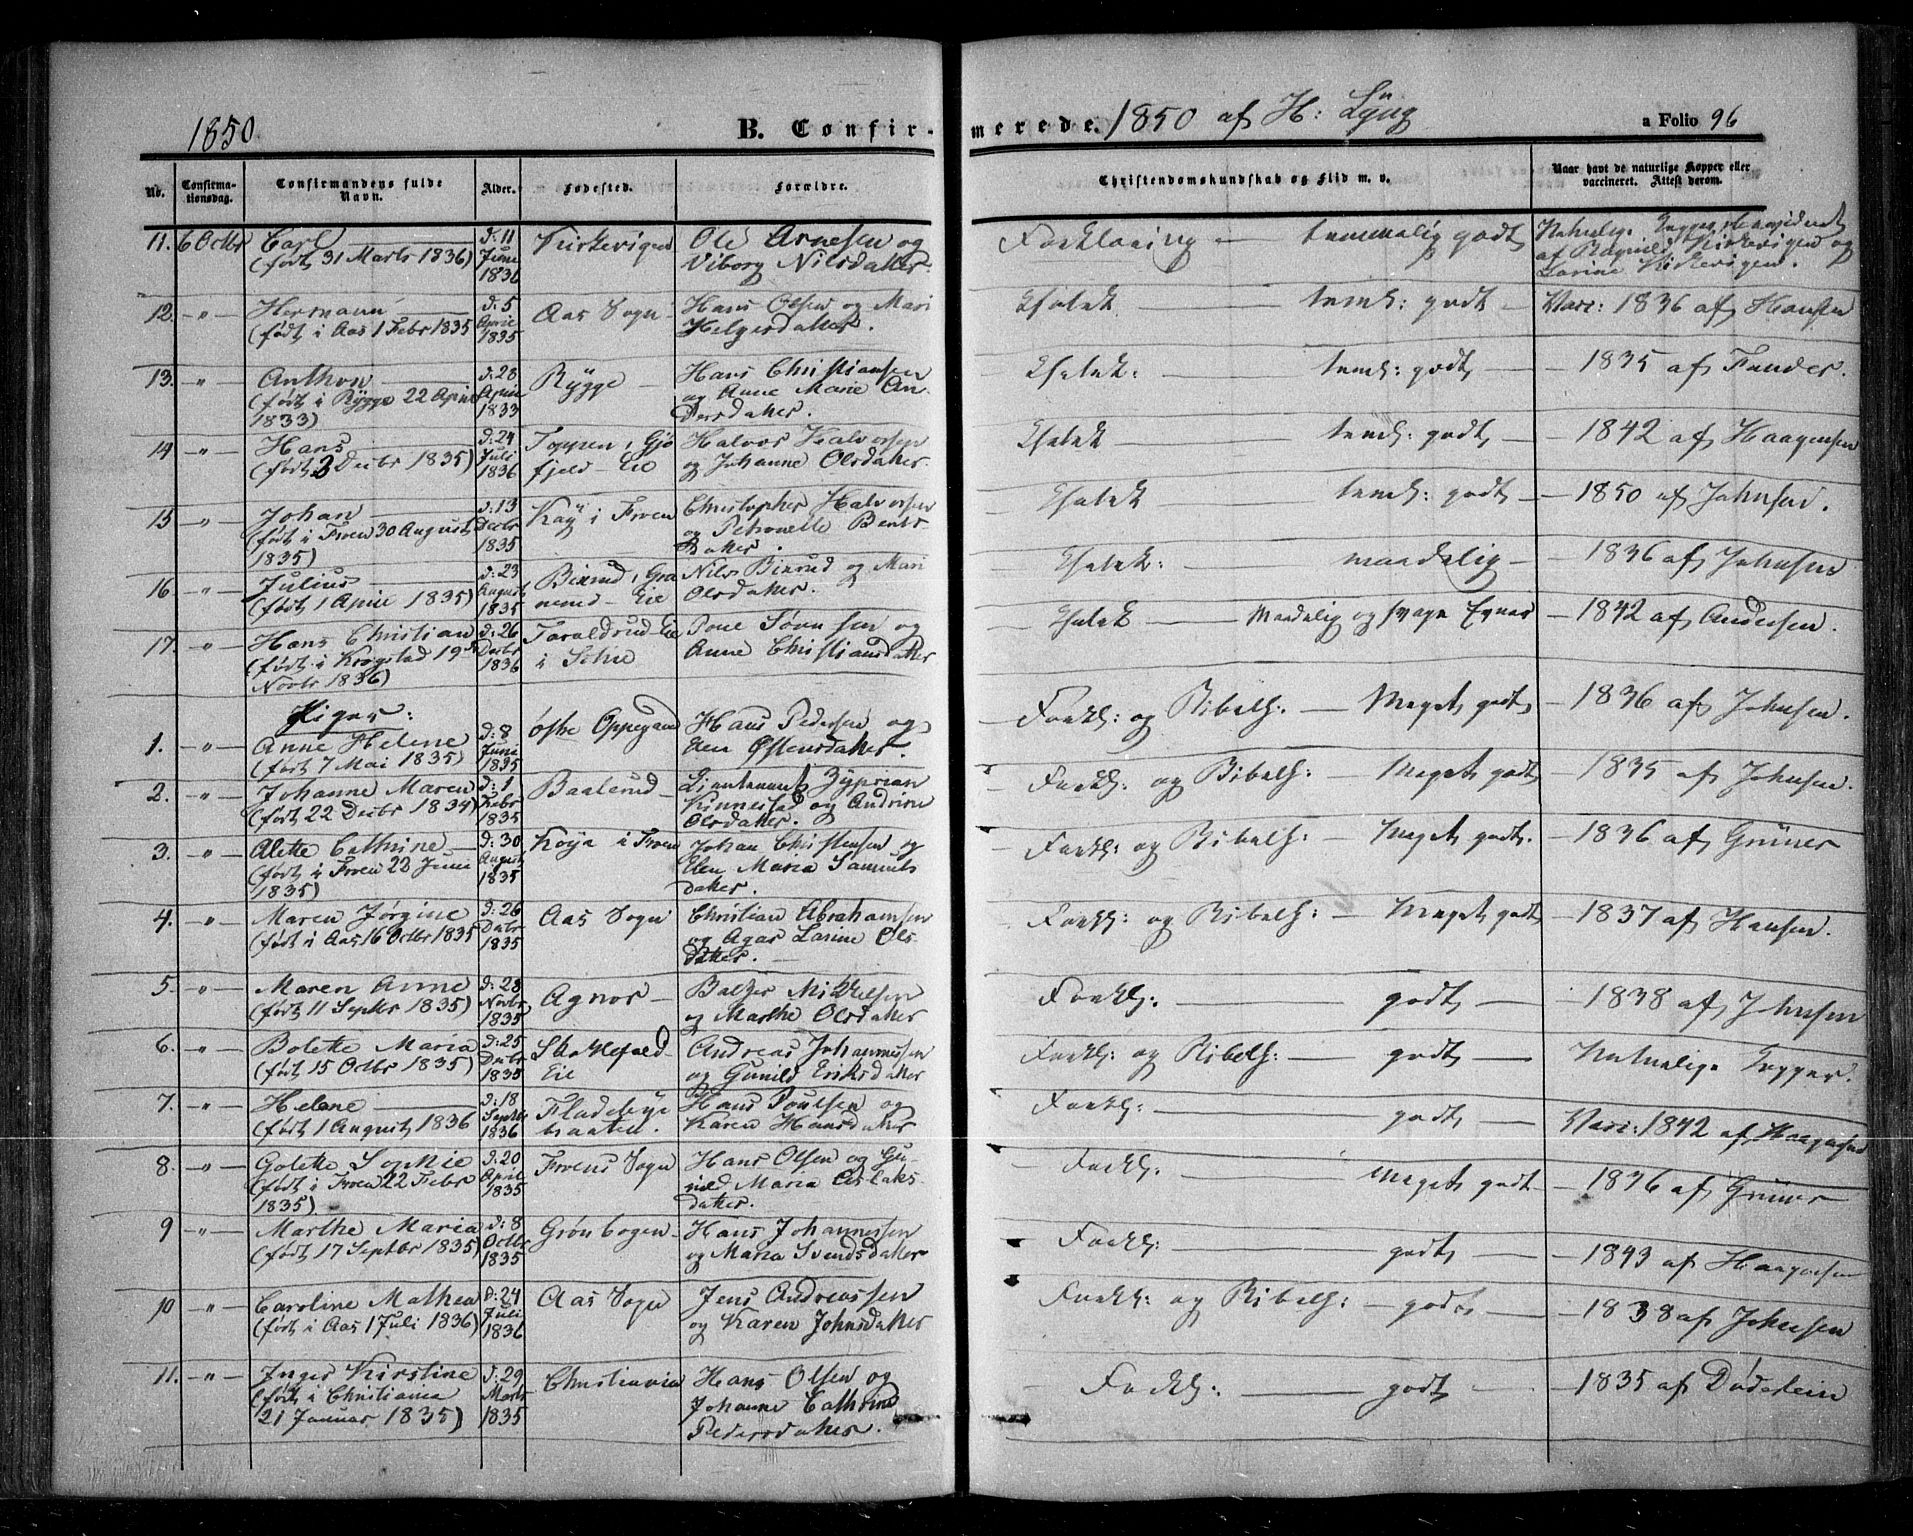 1850
B. Confir-
merede. 1850 af H: Lyng
a Folio 96
No.
Confirma-
tionsdag.
Confirmandens fulde
Navn.
Alder.
Fødested.
Forældre.
Christendomskundskab og Flid m. v.
Naar havt de naturlige Kopper eller
vaccineret. Attest derom.
11. 6 Octbr Carl — d: 11 Kirkevigen Ole Arnesen og Forklaring — temmelig godt
(født 31 Marts 1836) Juni Viborg Nilsdatter.
1836
12. " Hermann d: 5 Aas Sogn Hans Olsen og Mari — teml: godt — Vacc: 1836 af Hansen
(født i Aas 1 Febr 1835 April Helgesdatter.
1835
13. " Anthon d: 28 Rygge Hans Christiansen — teml: godt — 1835 af
(født i Rygge 22 April April og Anne Marie An-
1833) 1833 dersdatter.
14 " Hans d: 24 Toppen, Gjø Halvor Halvorsen — teml: godt — 1842 af Haagensen
(født 3 Decbr 1835) Juli fjeld Eie og Johanne Olsdatter.
1836
15 " Johan d: 13 Køy i Froen Christopher Halvorsen — teml: godt — 1850 af Johnsen.
(født i Froen 30 August Decbr og Petronelle Bents-
1835) 1835 datter.
16 " Julius d: 23 Nils og Mari — maadelig — 1836 af Johnsen
(født 1 April 1835) August Eie Olsdatter.
1835
17. " Hans Christian d: 26 Taraldrud Eie og — Maadelig og svage Evner 1842 af Andersen.
(født i Krogstad 19de Decbr i Anne Christiansdatter
Novbr 1836) 1836
Piger:
1. " Anne Helene d: 8 østre Oppegaard Hans Pedersen og — Forkl: og Bibelh: — Meget godt 1836 af Johnsen.
(født 7 Mai 1835) Juni Elen Østensdatter.
1835
2. " Johanne Maren d: 1 Baalerud Lieutenant Zyprian — Forkl: og Bibelh: Meget godt 1835 af Johnsen.
(født 22 Decbr 1834) Febr Kinnestad og Andrine
1835 Olsdatter.
3. " Alette Cathrine d: 30 Køya i Froen Johan Christensen og — Forkl: og Bibelh: — Meget godt. — 1836 af Grüner
(født i Froen 23 Juni August Elen Maria Samuels
1835) 1835 datter.
4. " Maren Jørgine d: 26 Aas Sogn Christian Abrahamsen — Forkl: og Bibelh: — Meget godt — 1837 af Hansen.
(født i Aas 16 Octbr 1835 Decbr og Agar Larine Ols-
1835 datter.
5. " Maren Anne d: 28 Agnor Baltzer Mikkelsen Forkl: — godt — 1838 af Johnsen
(født 11 Septbr 1835) Novbr og Marthe Olsdatter
1835
6. " Bolette Maria d: 25 Andreas Johannessen Forkl: og Bibelh: — godt — Naturlige Kopper.
(født 15 Octbr 1835) Decbr Eie og Gunild Eriksdatter
1835
7. " Helene d: 18 Fladebye Hans Poulsen og Forkl: — godt — Vacc: 1842 af Haagensen
(født 1 August 1836 Septbr braaten. Karen Hansdatter
1836
8. " Golette Sophie d: 20 Froens Sogn Hans Olsen og Gu- Forkl: — Meget godt — 1836 af Grüner
(født i Froen 22 Febr April nild Maria Aslaks
1835) 1835 datter.
9 " Marthe Maria d: 8 Grønbogen Hans Johannessen Forkl: — godt — 1843 af Haagensen
(født 17 Septbr 1835) Octbr og Maria Svendsdatter
1835
10 " Caroline Mathea d: 24 Aas Sogn Jens Andreassen Forkl: og Bibelh: — godt — 1838 af Johnsen
(født i Aas 1 Juli 1836) Juli og Karen Johnsdatter
1836
11. " Inger Kirstine d: 29 Christiania Hans Olsen og Forkl: — godt — 1835 af Døderlein
(født i Christiania Marts Johanne Cathrine
21 Januar 1835) 1835 Pedersdatter.